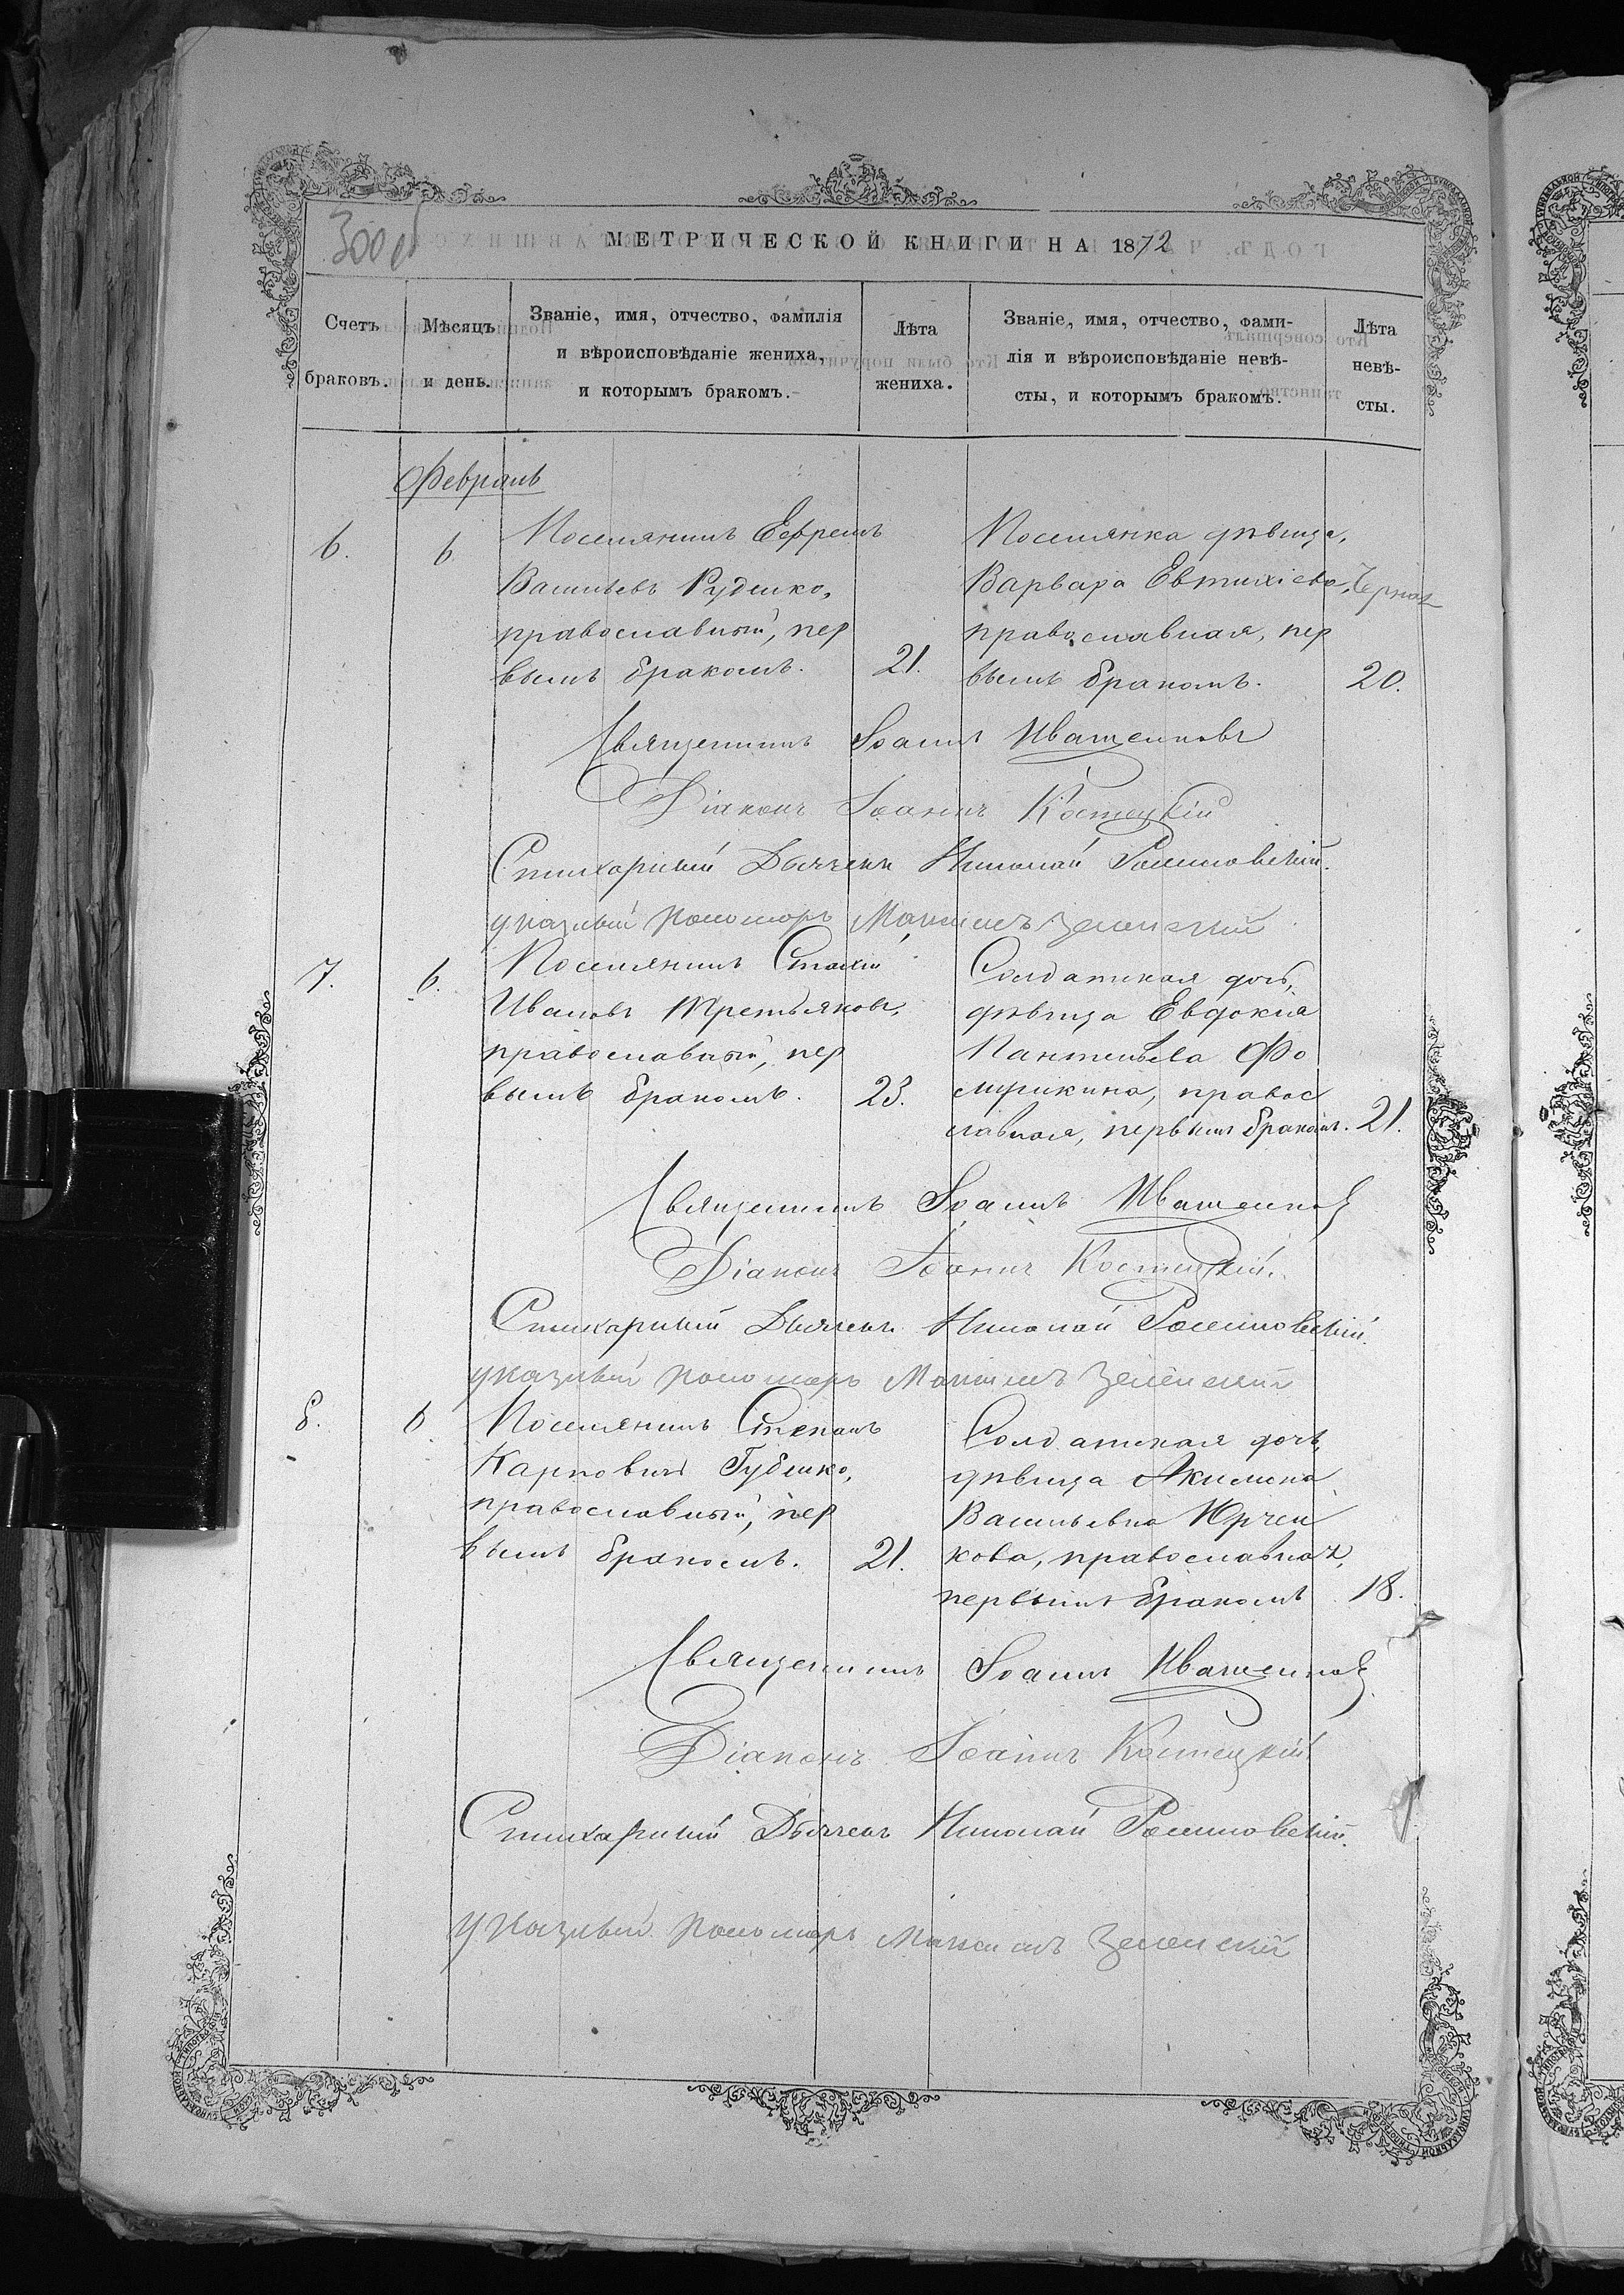 300 об
МЕТРИЧЕСКОЙ КНИГИ НА 1872
Счетъ браковъ.
Мѣсяцъ и день.
Званіе, имя, отчество, фамилія
и вѣроисповѣданіе жениха,
и которымъ бракомъ.
Лѣта
жениха.
Званіе, имя, отчество, фами-
лія и вѣроисповѣданіе невѣ-
сты, и которымъ бракомъ.
Лѣта
невѣ-
сты.
Февраль
6. 6
Поселянинъ Ефремъ
Васильевъ Руденко,
православный, пер
вымъ бракомъ. 21.
Поселянка дѣвица,
Варвара Евтихіева, Черная
православная, пер
вымъ бракомъ. 20.
Священникъ Іоаннъ Иващенковъ
Діаконъ Іоаннъ Костецкій
Стихарный Дьячекъ Николай
указный пономарь Максимъ Зеленскій
7. 6.
Поселянинъ Стахій
Ивановъ Третьяковъ,
православный, пер
вымъ бракомъ. 23.
Солдатская дочь,
дѣвица Евдокія
Пантелѣева Фо
мушкина, правос
лавная, первымъ бракомъ. 21.
Священникъ Іоаннъ Иващенковъ
Діаконъ Іоаннъ Костецкій.
Стихарный Дьячекъ Николай
указный пономарь Максимъ Зеленскій
8. 6
Поселянинъ Степанъ
Карповичъ Губенко,
православный, пер
вымъ бракомъ. 21.
Солдатская дочь,
дѣвица Акилина
Васильевна Юрчен
кова, православная,
первымъ бракомъ 18.
Священникъ Іоаннъ Иващенковъ
Діаконъ Іоаннъ Костецкій
Стихарный Дьячекъ Николай
указный пономарь Максимъ Зеленскій